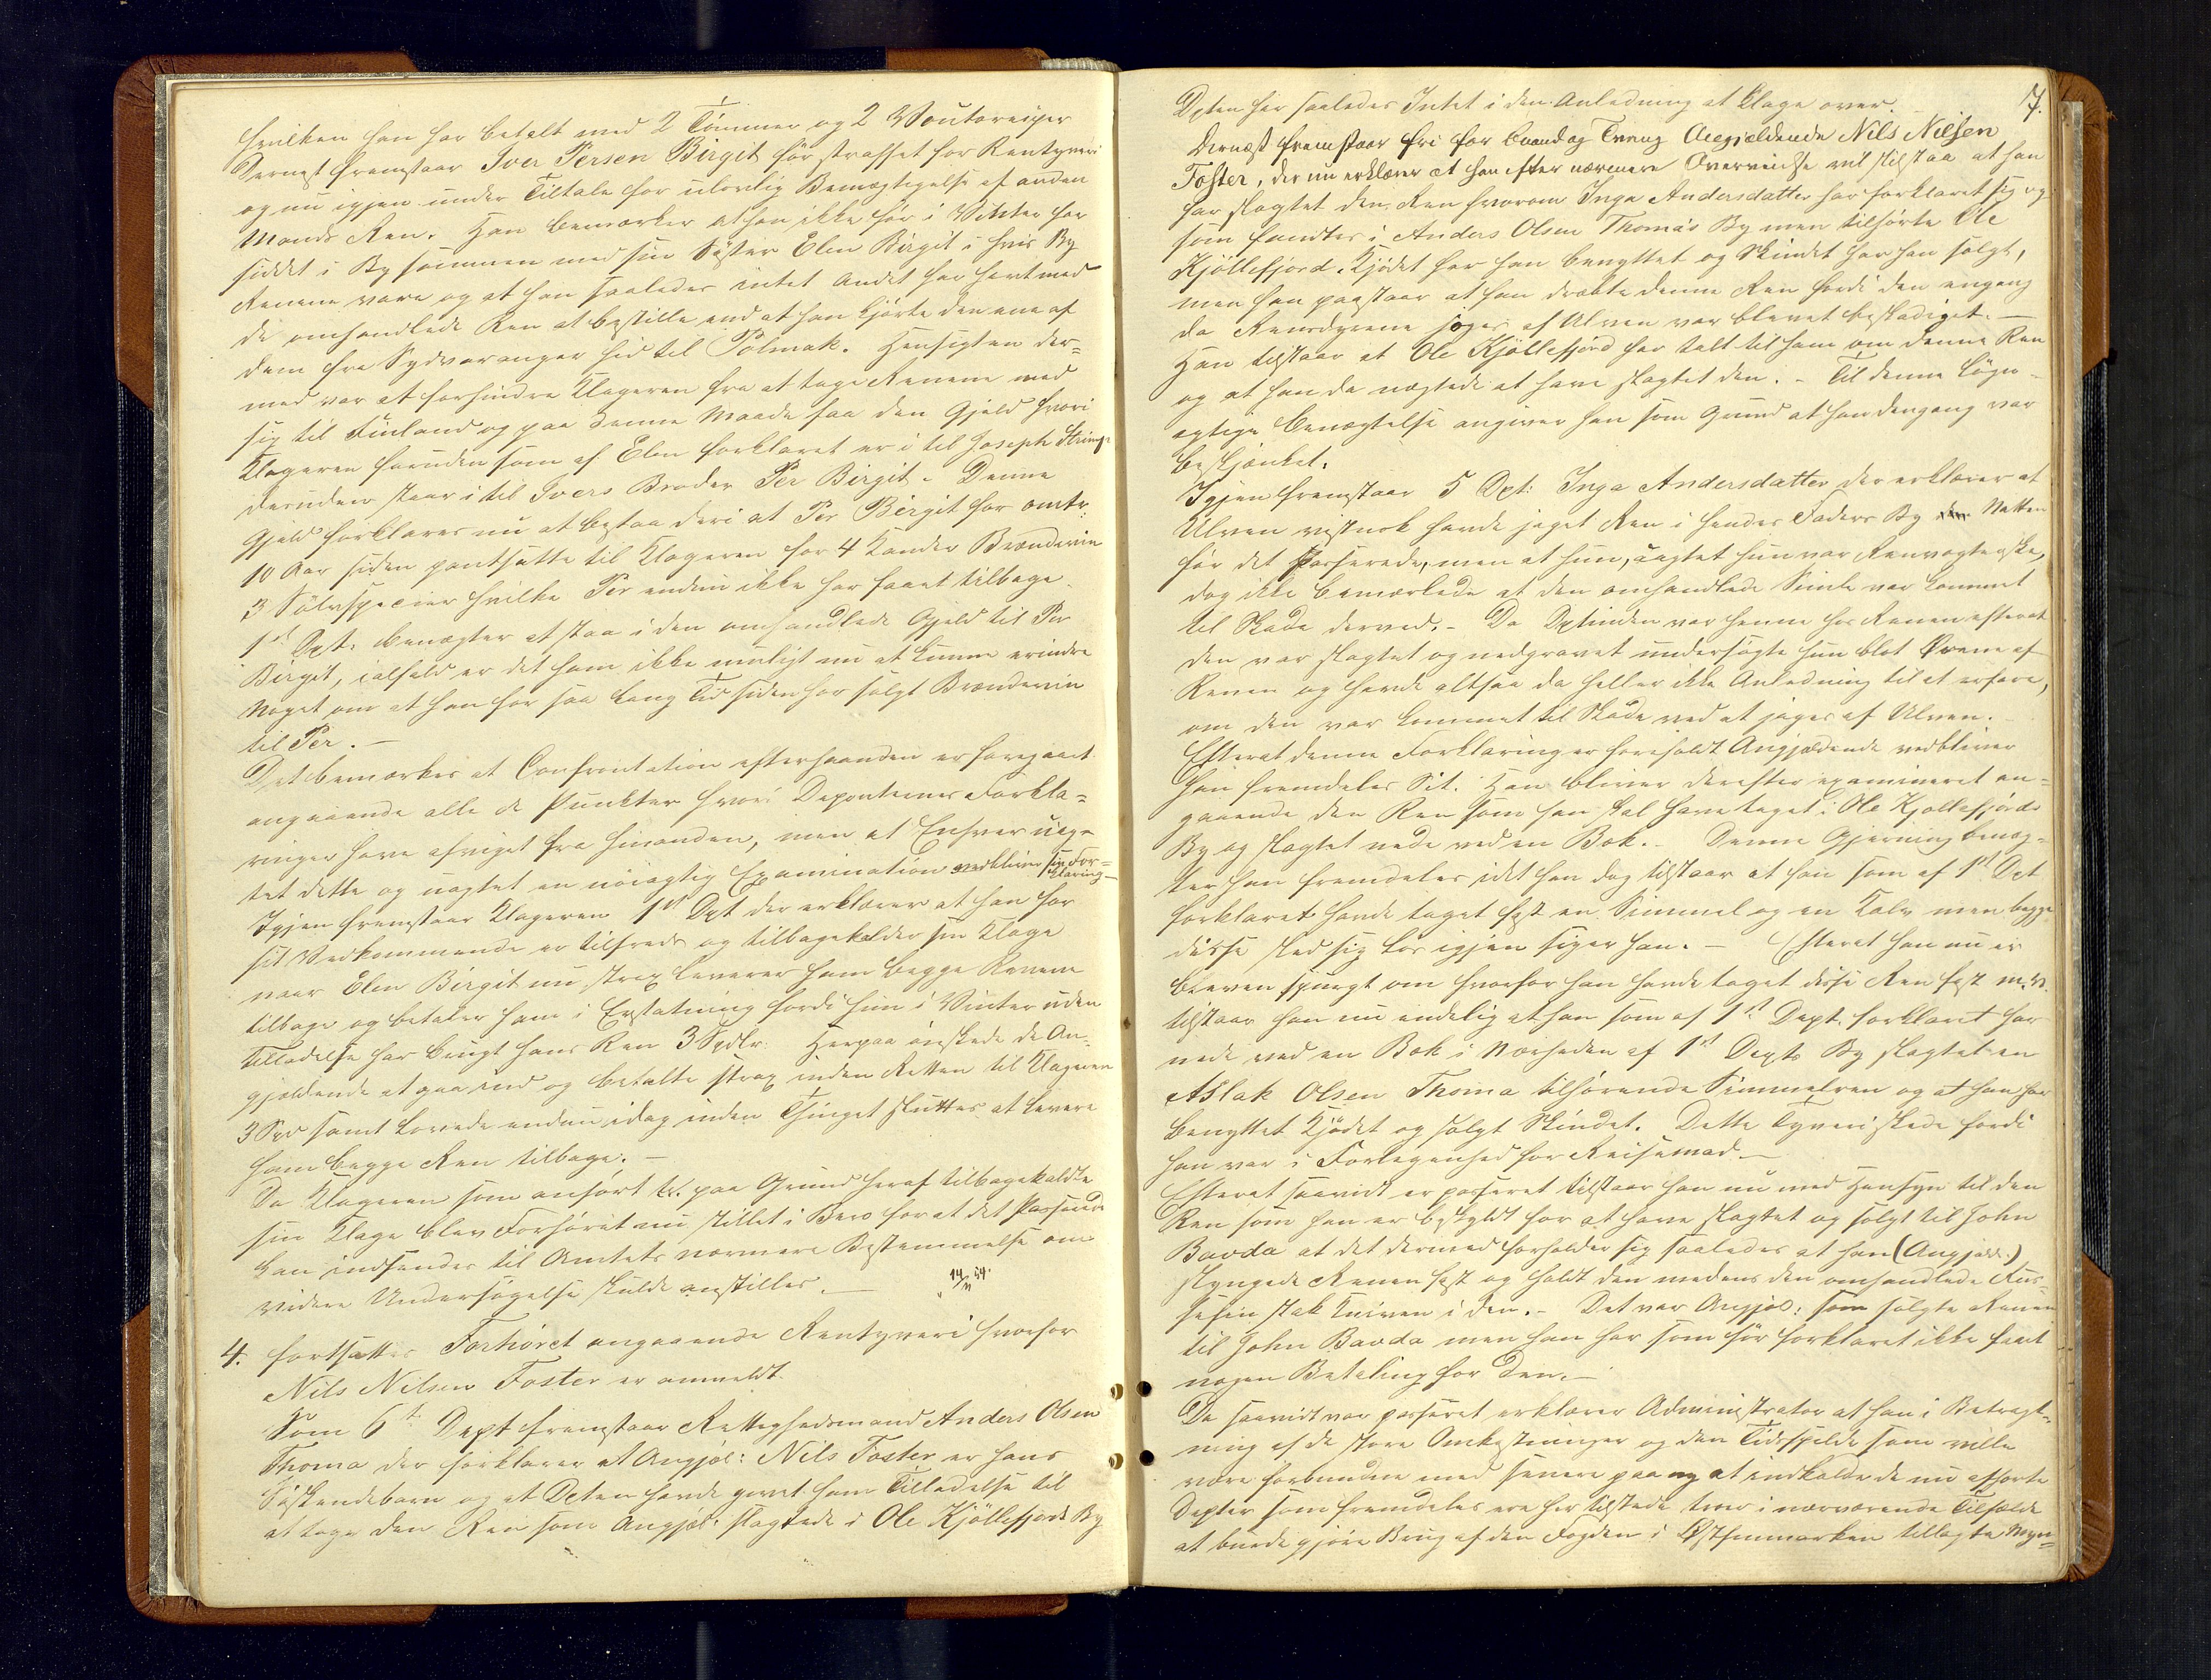 hvilken han har betalt med 2 Tömmer og 2 Voutoraiper
Dernæst fremstaar Iver Persen Birgit før straffet for Rentyveri
og nu igjen under Tiltale for ulovlig Bemægtigelse af anden
Mands Ren. Han bemærker at han ikke før i Vinter har
siddet i By sammen med sin Söster Elen Birgit i hvis By
Renene vare og at han saaledes intet andet har havt med
de omhandlede Ren at bestille end at han kjørte den ene af
dem fra Sydvaranger hid til Polmak. Hensigten der=
med var at forhindre Klageren fra at tage Renene med
sig til Finland og paa denne Maade faa den Gjeld hvori
Klageren foruden som af Elen forklaret er i til Joseph
desuden staar i til Ivers Broder Per Birgit. Denne
Gjeld forklares nu at bestaa deri at Per Birgit for omtr.
10 Aar siden pantsatte til Klageren for 4 Kander Brændeviin
3 Sölvspecier hvilke Per endnu ikke har faaet tilbage.
1ste Dept. benægter at staa i den omhandlede Gjeld til Per
Birgit, ialfald er det ham ikke muligt nu at kunne erindre
Noget om at han for saa lang Tid siden har solgt Brændeviin
til Per. —
Det bemærkes at Confrontation efterhaanden er foregaaet
angaaende alle de Punkter hvori Deponternes Forkla=
ringer have afveget fra hinanden, men at Enhver uag=
tet dette og uagtet en nöiagtig Examination vedbliver sin For=
klaring —
Igjen fremstaar Klageren 1ste Dpt der erklærer at han for
sit Vedkommende er tilfreds og tilbagekalder sin Klage
naar Elen Birgit nu strax leverer ham begge Renene
tilbage og betaler ham i Erstatning fordi hun i Vinter uden
Tilladelse har brugt hans Ren 3 Spdlr. Herpaa önskede de An=
gjældende at gaa ind og betalte strax inden Retten til Klageren
3 Spd samt lovede endnu idag inden Thinget sluttes at levere
ham begge Ren tilbage. —
Da Klageren som anført til. paa Grund heraf tilbagekaldte
sin Klage blev Forhöret nu stillet i Bero for at det Passerede
kan indsendes til Amtets nærmere Bestemmelse om
videre Undersøgelse skulde anstilles. —
4. fortsattes Forhöret angaaende Rentyveri hvorfor
Nils Nilsen Foster er anmeldt.
Som 6te Dept fremstaar Rettighedsmand Anders Olsen
Thoma der forklarer at Angjæl: Nils Foster er hans
Söskendebarn og at Dpten havde givet ham Tilladelse til
at tage den Ren som Angjæl. slagtede i Ole Kjöllefjords By
7.
Dpten har saaledes Intet i den Anledning at klage over.
Dernæst fremstaar fri for baand og Tvang Angjældende Nils Nilsen
Foster, der nu erklærer at han efter nærmere Overveielse vil tilstaa at han
har slagtet den Ren hvorom Inga Andersdatter har forklaret sig og
som fandtes i Anders Olsen Thoma's By men tilhörte Ole
Kjöllefjord. Kjödet har han benyttet og Skindet har han solgt,
men han paastaar at han dræbte denne Ren fordi den engang
da Rensdyrene joges af Ulven var blevet beskadiget. —
Han tilstaar at Ole Kjöllefjord har talt til ham om denne Ren
og at han da nægtede at have slagtet den. - Til denne lögn=
agtige Benægtelse angiver han som Grund at han dengang var
beskjænket.
Igjen fremstaar 5 Dpt: Inga Andersdatter der erklærer at
Ulven vistnok havde jaget Ren i hendes Faders By Natten
før det Passerede, men at hun, uagtet hun var Renvogterske,
dog ikke bemærkede at den omhandlede Simle var kommet
til Skade derved. - Da Dptinden var henne hos Renen efterat
den var slagtet og nedgravet undersøgte hun blot Ørene af
Renen og havde altsaa da heller ikke Anledning til at erfare,
om den var kommet til Skade ved at jages af Ulven. -
Efterat denne Forklaring er foreholdt Angjældende vedbliver
han fremdeles Sit. Han bliver derefter examineret an=
gaaende den Ren som han skal have taget i Ole Kjöllefjords
By og slagtet nede ved en Bæk. - Denne Gjerning benæg=
ter han fremdeles idet han dog tilstaar at han som af 1ste Dpt
forklaret havde taget fast en Simmel og en Kalv men begge
disse sled sig lös igjen siger han. — Efterat han nu er
bleven spurgt om hvorfor han havde taget disse Ren fast m.v.
tilstaar han nu endelig at han som af 1ste Dept. forklaret har
nede ved en Bæk i Nærheden af 1ste Depts By slagtet en
Aslak Olsen Thoma tilhørende Simmelren og at han har
benyttet Kjödet og solgt Skindet. Dette Tyveri skede fordi
han var i Forlegenhed for Reisemad. —
Efterat saavidt er passeret tilstaar han nu med Hensyn til den
Ren som han er beskyldt for at have slagtet og solgt til John
Bavda at det dermed forholder sig saaledes at han (Angjæld.)
slyngede Renen fast og holdt den medens den omhandlede Rus=
sefin stak Kniven i den. - Det var Angjæl: som solgte Renen
til John Bavda men han har som før forklaret ikke faaet
nogen Betaling for den. —
Da saavidt var passeret erklærer Administrator at han i Betragt=
ning af de store Omkostninger og den Tidsspilde som ville
være forbunden med senere paa ny at indkalde de nu afhørte
Depter som fremdeles ere her tilstede troer i nærværende Tilfælde
at burde gjöre Brug af den Fogden i Østfinmarken tillagte Myn=